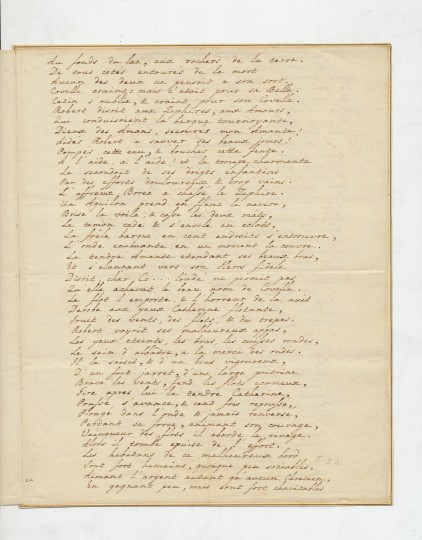 Au fonds du lac, aux rochers de la terre.
De tous cotés entourés de la mort
Aucun des deux ne pensoit a son sort,
Covelle craint: mais c'etoit pour sa Belle.
Catin s'oublie, & craint pour son Covelle.
Robert disoit aux Zephires, aux Amours,
Qui conduisoient la barque tournoyante,
Dieux des Amans, secoures mon Amante!
Aidés Robert a sauver ses beaux jours!
Pompés cette eau, & bouches cette fente,
A l'aide, a l'aide! et la troupe charmante
Le secondoit de ses doigts enfantins
Par des efforts douloureux & trop vains.
L'affreux Borée a chassé le Zephire.
Un Aquilon prend en flanc le navire,
Brise la voile, & casse les deux mats,
Le timon cede & s'envole en eclats,
La frele barque en cent endroits s'entrouvre,
L'onde ecumante en un moment la couvre.
La tendre Amante etendant ses beaux bras,
Et s'elançant vers son Heros fidele
Disoit, cher Co... l'onde ne permit pas
Qu'elle achevat le beau nom de Covelle.
Le flot l'emporte, & l'horreur de la nuit
Derobe aux yeux Catherine flotante,
Jouet des vents, des flots, & du trepas.
Robert voyoit ses malheureux appas,
Les yeux eteints, les bras, les cuisses rondes,
Le sein d'albatre, a la merci des ondes.
Il la saisit, & d'un bras vigoureux,
D'un fort jarret, d'une large poitrine
Brave les vents, fend les flots ecumeux,
Tire apres lui la tendre Catherine,
Pousse, s'avance, & cent fois repoussé,
Plongé dans l'onde & jamais renversé,
Perdant sa force, animant son courage,
Vainqueur des flots il aborde le rivage.
Alors il tombe epuisé de l'effort.
Les habitans de ce malheureux bord
Sont fort humains, quoique peu sociables.
Aimant l'argent autant qu'aucun Chretien,
En gagnant peu, mais sont fort charitables